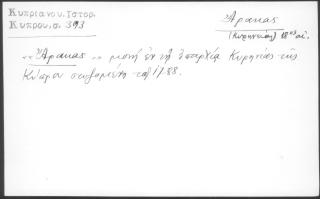 Κυπριανου. Ἱστορ.
Κύπρου, σ. 393
Ἄρακας
(Κυρηνείας) 18ος αἰ.
"Ἄρακας" μονή ἐν τῇ ἐπαρχίᾳ Κυρηνείας τῆς
Κύπρου σωζομένη τῷ 1788.